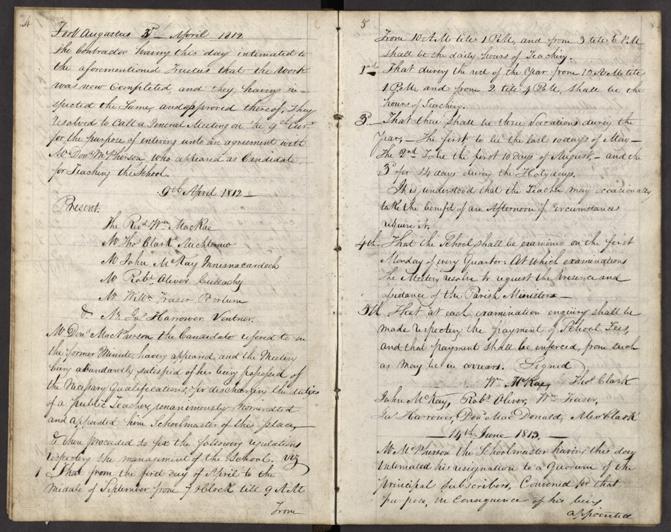 4
Fort Augustus 3d April 1812
The Contractor having this day intimated to
the aforementioned Trustees that the Work
was now Completed, and they having in-
spected the same, and approved thereof, They
resolved to Call a General Meeting on the 9th
for the purpose of entering into an agreement with
Mr Don McPherson who appeared as Candidate
for Teaching the School.
9th April 1812
Present
The Revd Wm MacRae
Mr Thos Clark
Mr John McKay Innisnacardoch
Mr Robt Oliver Culachy
Mr Willm Fraser
& Mr Jas Harrower Vintner.
Mr Dond MacPherson the Candidate refered to in
the former Minute, having appeared, and the Meeting
being abundantly satisfied of his being possessed of
the Necessary Qualifications, for discharging the duties
of a public Teacher, unanimously Nominated
and appointed him Schoolmaster of this place,
& then proceeded to fix the following regulations
respecting the management of the School. viz
1 That from the first day of April to the
middle of September from 7 oClock till 9 A.M
From
5
From 10 A.M till 1 P.M, and from 3 till 6 P.M
shall be the daily hours of Teaching.
That during the rest of the Year from till
1 P.M and from 2 till 4 P.M, shall be the
hours of Teaching.
3 That there shall be three Vacations during the
Year, The first to be the last 10 days of May
The 2nd To be the first 10 days of August, and the
3d for 14 days during the Holydays.
It is understood that the Teacher may occasionally
take the benefit of an Afternoon if Circumstances
require it.
4th That the School shall be examined on the first
Monday of every Quarter. At which examinations
the Meeting resolve to request the Presence and
of the Parish Ministers
5th That at each examination enquiry shall be
made respecting the payment of School Fees,
and that payment shall be enforced, from such
as may be in arrears. Signed
Wm McRae, Thos Clark
John McKay, Robt Oliver, Wm Fraser,
Jas Harrower, Dond MacDonald, Alexr Clark
14th June 1813.
Mr McPherson the Schoolmaster having this day
intimated his resignation to a Quorum of the
principal Subscribers, Convened for that
purpose, in Consequence of his being
appointed